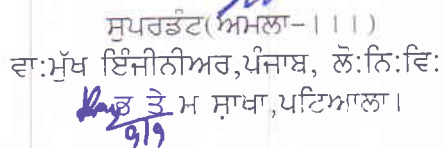 ਸੁਪਰਡੰਟ(ਅਮਲਾ-।।।)
ਵਾ:ਮੁੱਖ ਇੰਜੀਨੀਅਰ,ਪੰਜਾਬ, ਲੋ:ਨਿ:ਵਿ:
ਭ ਤੇ ਮ ਸ਼ਾਖਾ,ਪਟਿਆਲਾ।
9/9